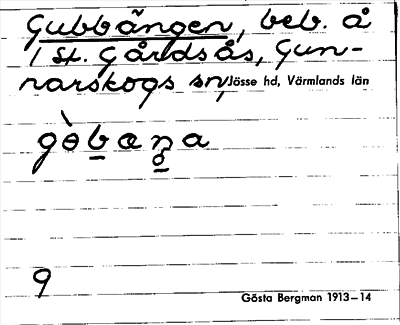 Gubbängen, beb. å
1 St. Gårdsås, Gun-
narskogs sn, Jösse hd, Värmlands län
9
Gösta Bergman 1913–14